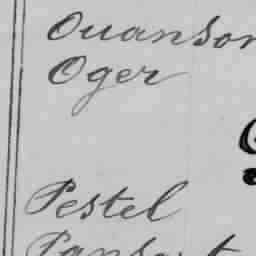 Ouanson
Oger
Pestel